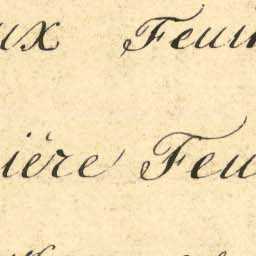 ux Feui
ière Feu